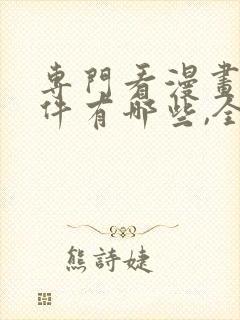 專門看漫畫
件有哪些,全
熊詩婕